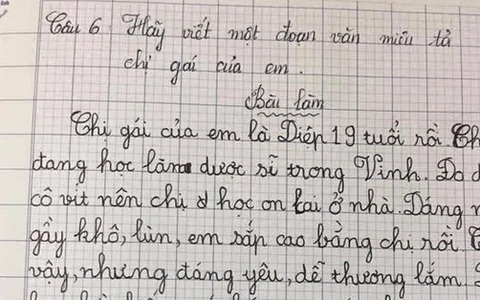 Câu 6 Hãy viết một đoạn văn miêu tả
chị gái của em.
Bài làm
Chị gái của em là Diép 19 tuổi rồi. Ch
đang học làm dược sĩ trong Vinh. Do d
cô vit nên chị học on lai ở nhà. Dáng
gầy khô, lùn, em sắp cao bằng chị rồi
vậy, nhưng đáng yêu, dễ thương lắm.